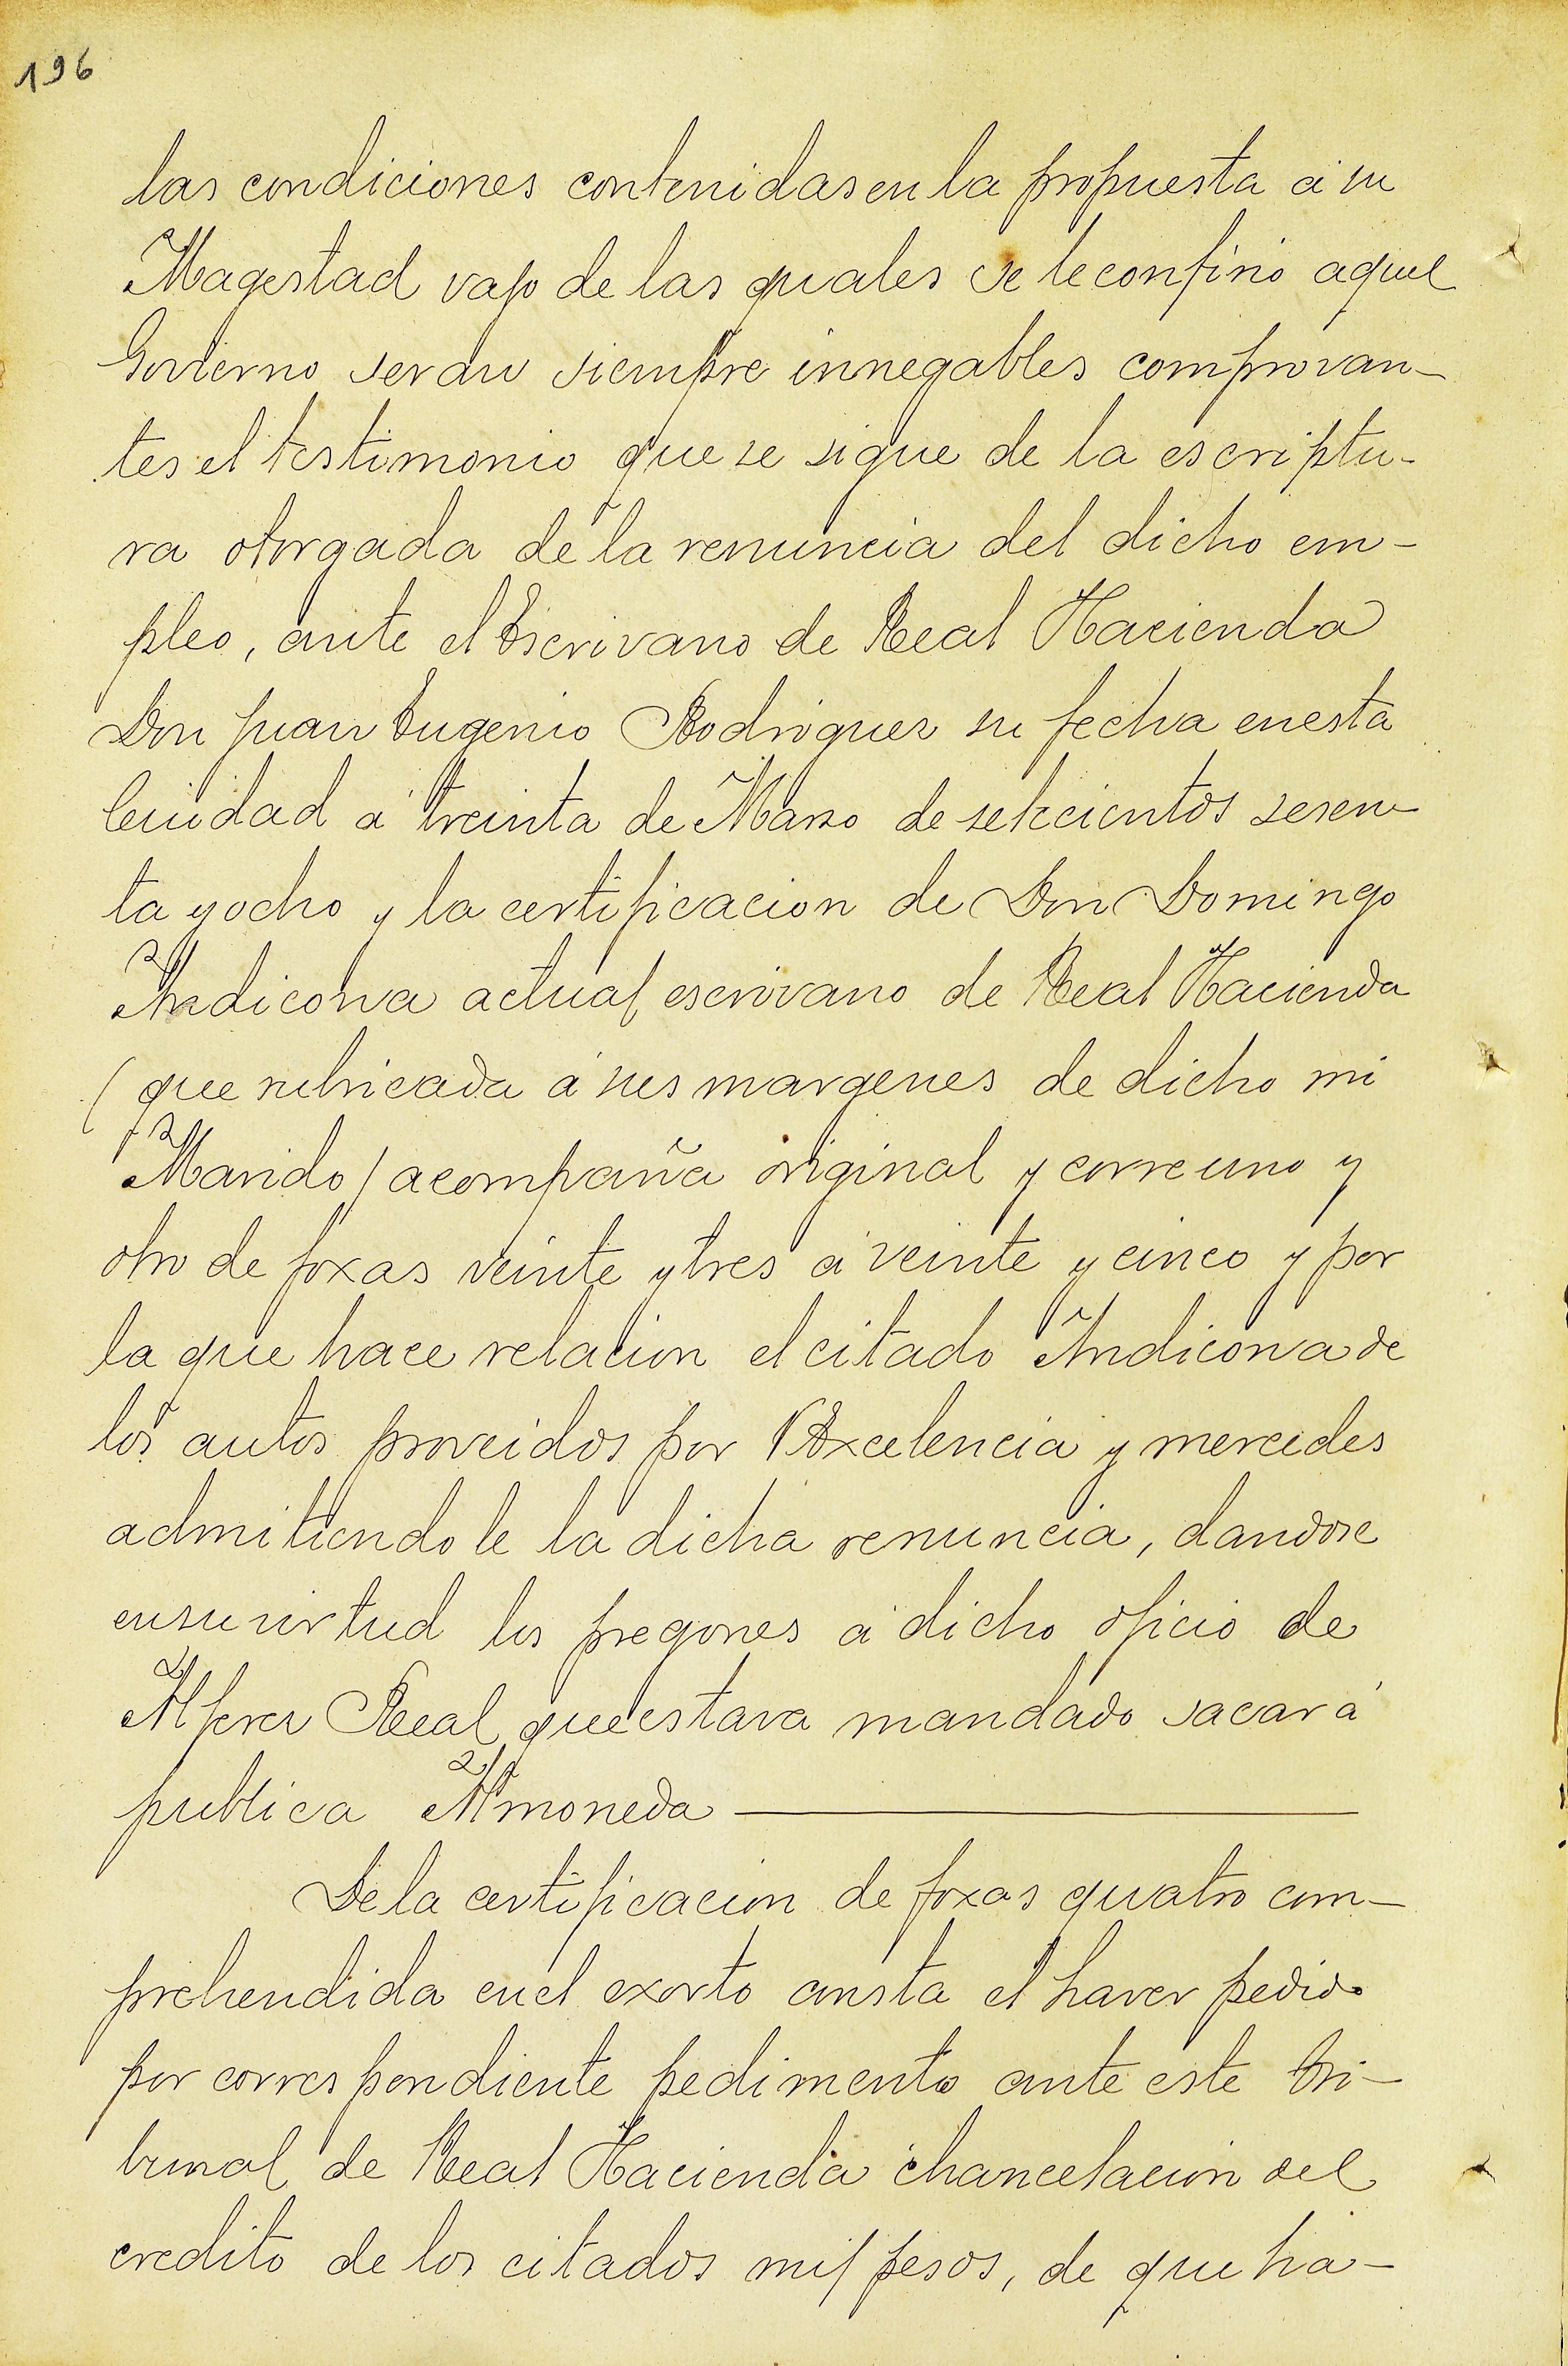 196
las condiciones contenidas en la propuesta á su
Magestad vajo de las quales se le confirió aquel
Govierno seran siempre innegables comprovan-
tes el testimonio que se sigue de la escriptu-
ra otorgada de la renuncia del dicho em-
pleo, ante el Escrivano de Real Hacienda
Don Juan Eugenio Rodriguez su fecha en esta
Ciudad á treinta de Marzo de setecientos sesen-
ta y ocho y la certificacion de Don Domingo
Andicona actual escrivano de Real Hacienda
(que rubricada á sus margenes de dicho mi
Marido) acompaña original y corre uno y
otro de foxas veinte y tres á veinte y cinco y por
la que hace relacion el citado Andicona de
los autos proveidos por VExcelencia y mercedes
admitiendole la dicha renuncia, dandose
en su virtud los pregones á dicho oficio de
Alferez Real que estava mandado sacar á
publica Almoneda
De la certificacion de foxas quatro com-
prehendida en el exorto consta el haver pedido
por correspondiente pedimento ante este tri-
bunal de Real Hacienda chancelacion del
credito de los citados mil pesos, de que ha-